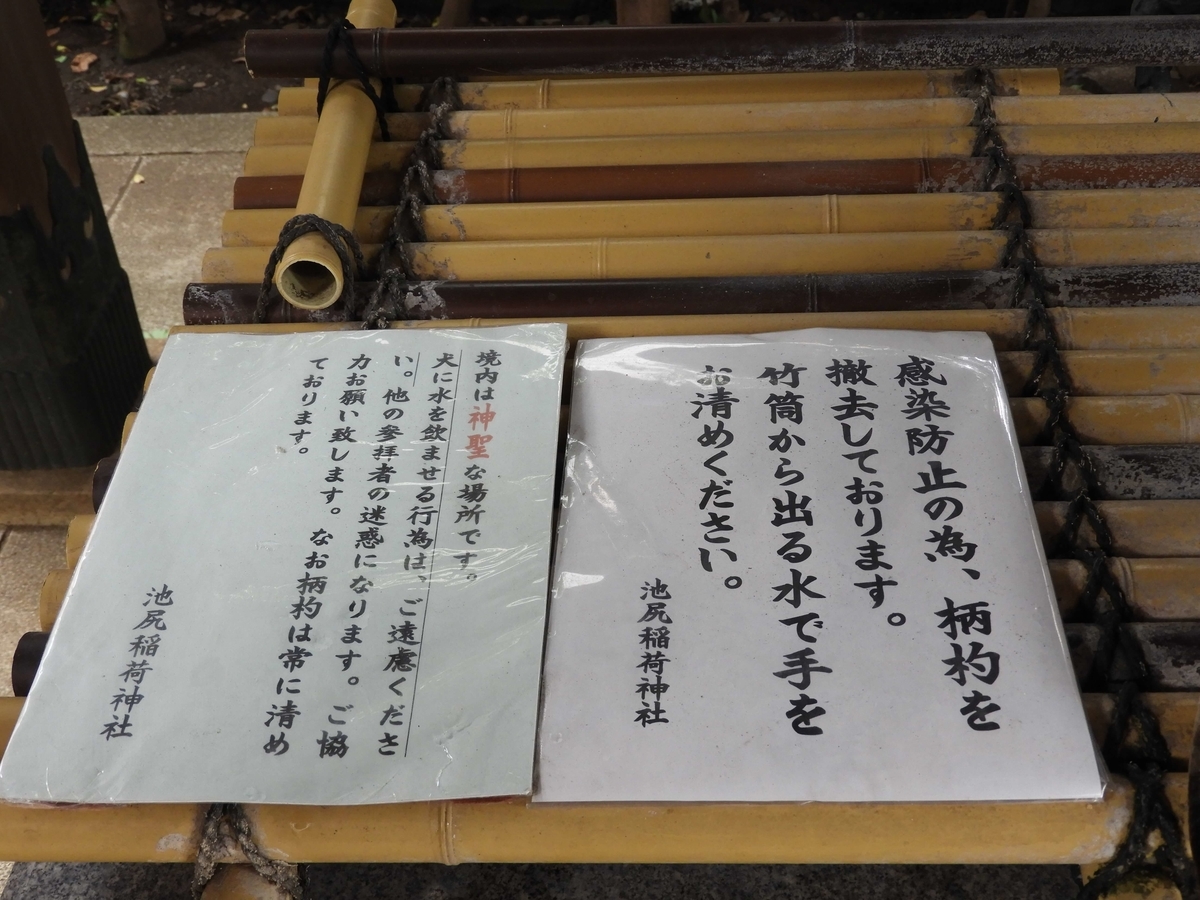 感染防止の為、柄杓を
撤去しております。
竹筒から出る水で手を
お清めください。
池尻稲荷神社
境内は神聖な場所です。
犬に水を飲ませる行為は、ご遠慮くださ
い。他の参拝者の迷惑になります。ご協
力お願い致します。なお柄杓は常に清め
ております。
池尻稲荷神社